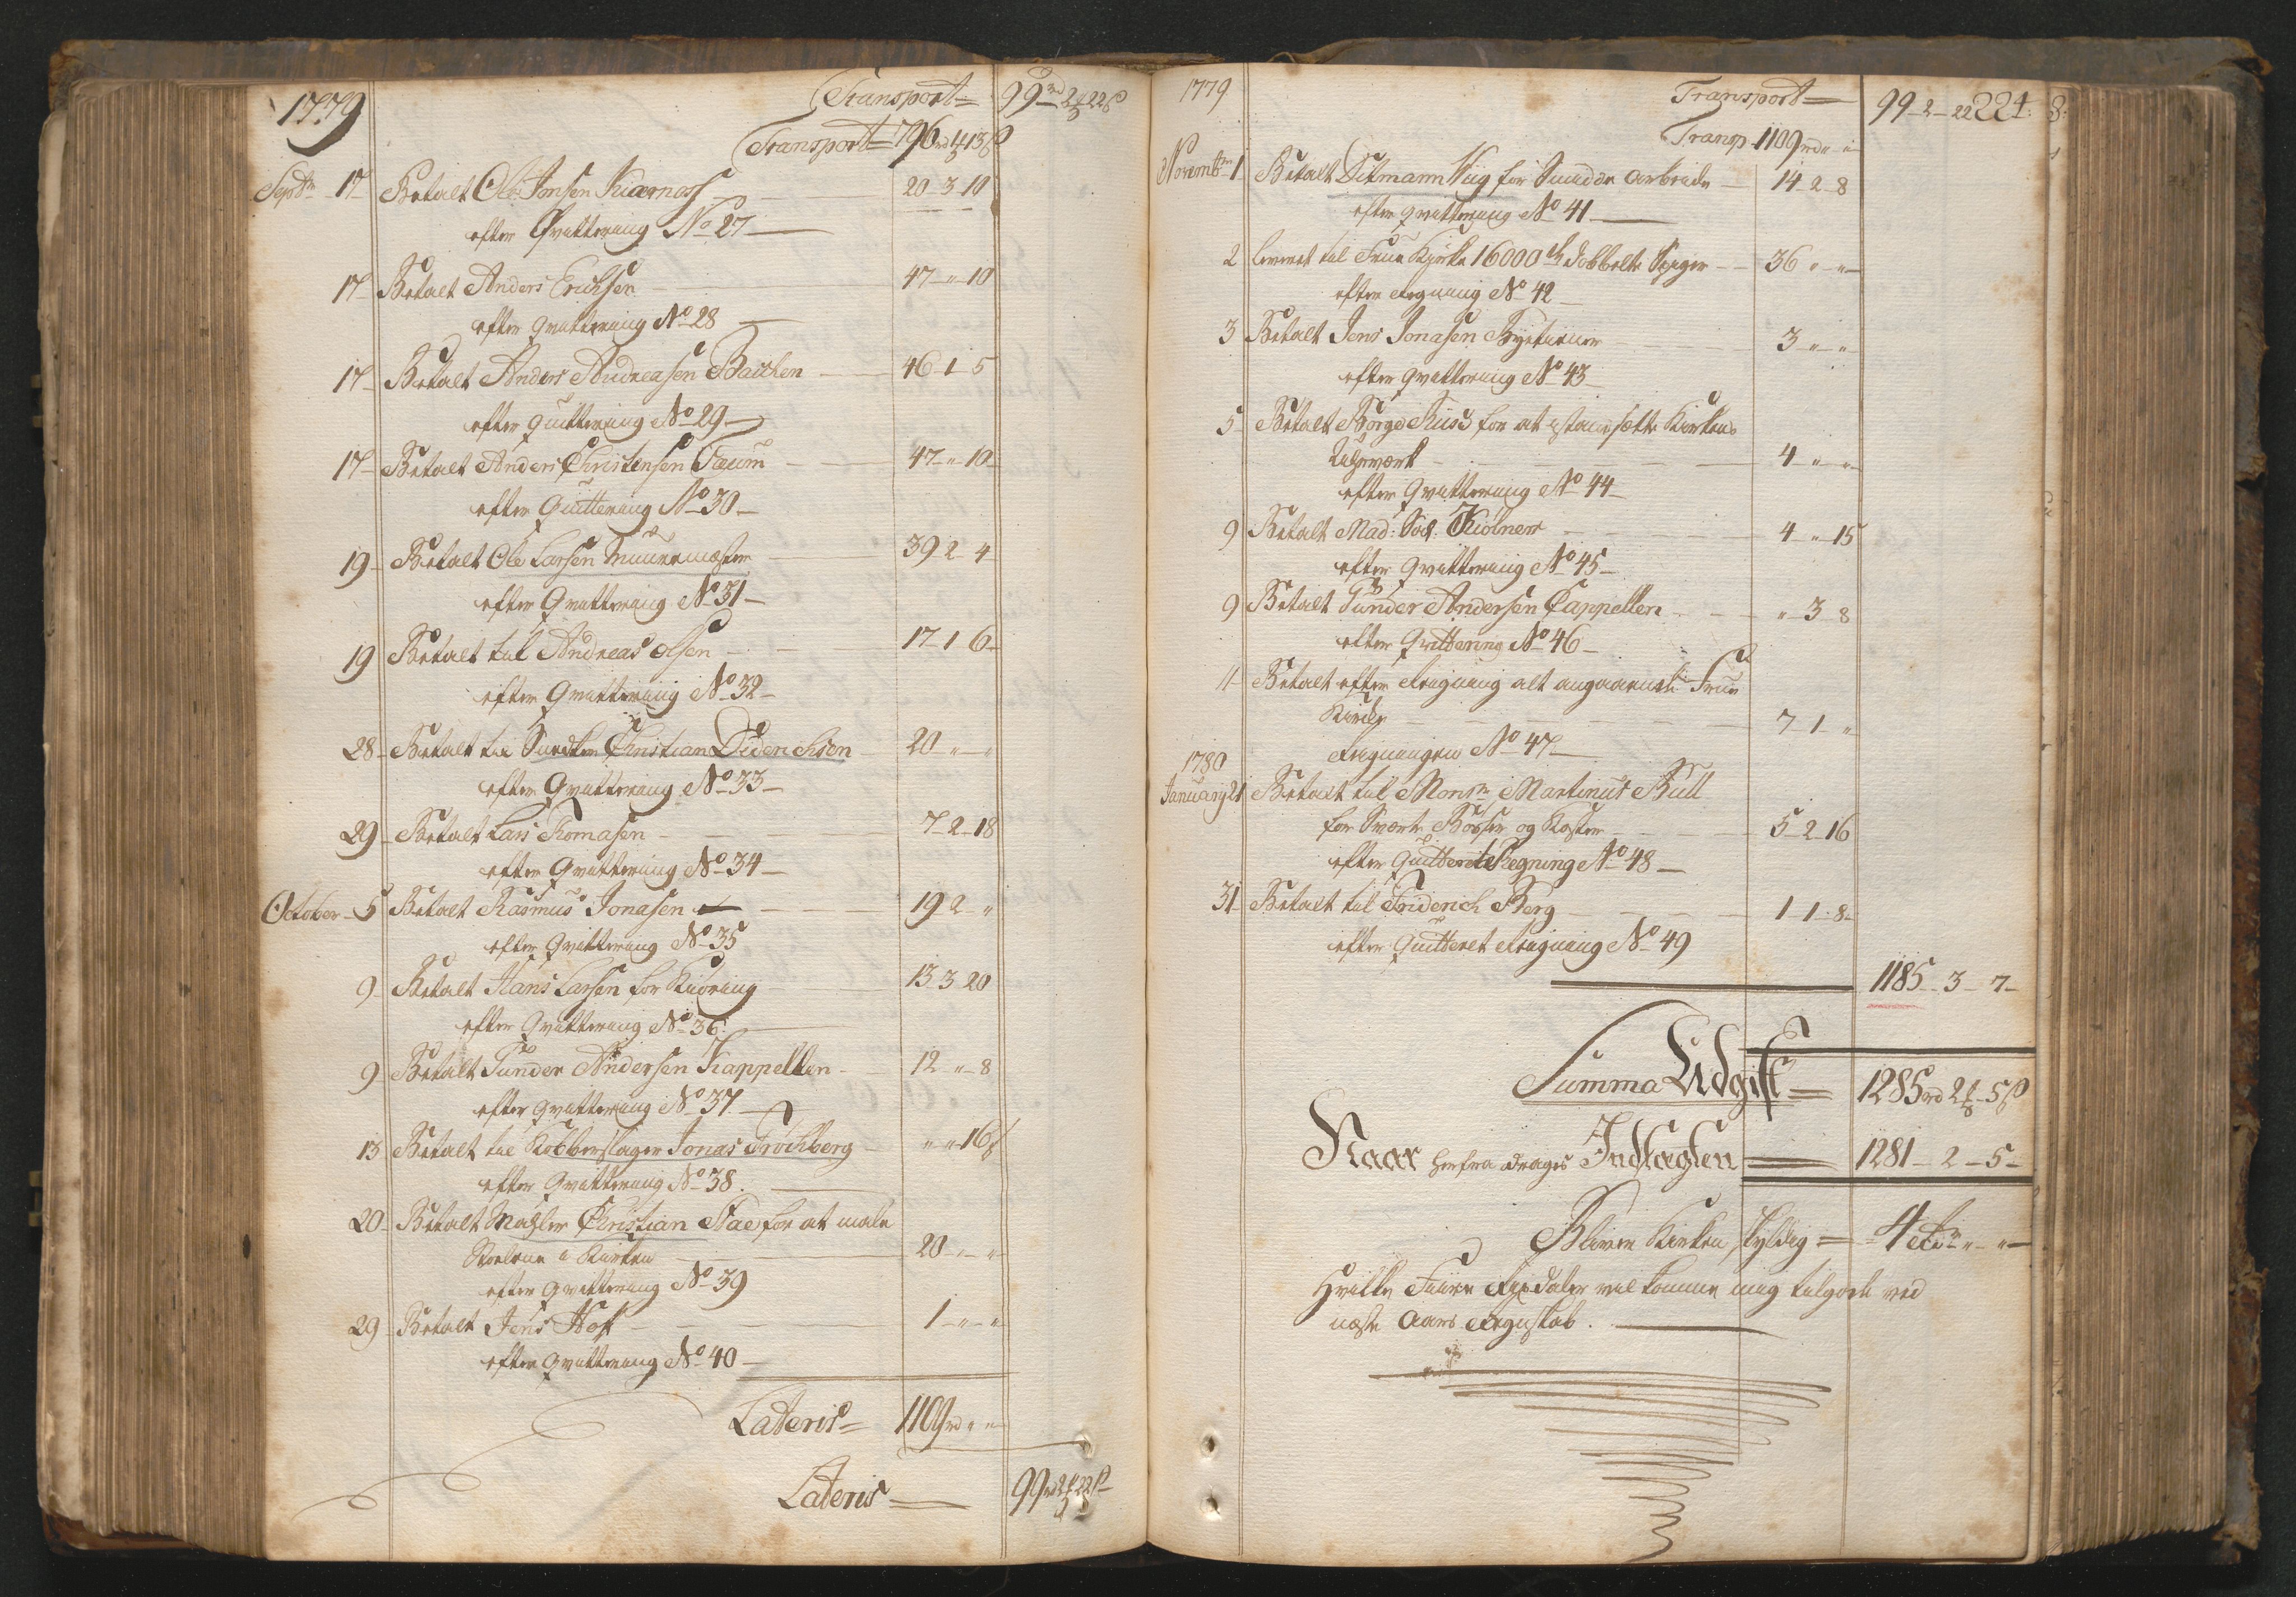 1779
Transport = 99rd 2 22ß
Transport = 796rd 1 13ß
Septr 17 Betalt Ole Jonsen Kiærnæss 20-3-10
efter Qvittering No 27
17 Betalt Anders Erichsen 47-"-10
efter Qvittering No 28
17 Betalt Anders Andreasen Bacchen 46-1-5
efter Quittering No 29
17 Betalt Anders Christensen Taum 47-"-10
efter Quittering No 30
19 Betalt Ole Larsen Muurmæster 39-2-4
efter Qvittering No 31
19 Betalt til Andreas Olsen 17-1-6
efter Qvittering No 32
28 Betalt til Snedker Christian Diderichsen 20-"-"
efter Qvittering No 33
29 Betalt Lars Tomasen 7-2-18
efter Qvittering No 34
October 5 Betalt Rasmus Jonasen 19-2-"
efter Qvittering No 35
9 Betalt Hans Larsen for Kiøring 13-3-20
efter Qvittering No 36
9 Betalt Gunder Andersen Kappellen 12-"-8
efter Qvittering No 37
13 Betalt til Kobberslager Jonas Frøchberg "-"-16ß
efter Qvittering No 38
20 Betalt Mahler Christian Stae for at male
Stoelene i Kirken 20-"-"
efter Qvittering No 39
29 Betalt Jens Hof 1-"-"
efter Qvittering No 40
Lateris = 1109rd " "
Lateris = 99rd 2 22ß
1779
Transport = 99-2-22 224
Transp 1109rd " "
Novembr 1 Betalt Ditmann Wiig for Smedde arbeide 14-2-8
efter qvittering No 41
2 leveret til Frue Kirke 16000 dobbelte Spiger 36-"-"
efter Regning No 42
3 Betalt Jens Jonasen Byetiener 3-"-"
efter Qvittering No 43
5 Betalt Børge Ruus for at istandsætte Kirkens
Uhrværk 4-"-"
efter Qvittering No 44
9 Betalt Mad: Sal. Kiølner 4-"-15
efter Qvittering No 45
9 Betalt Gunder Andersen Cappellen "-3-8
efter Qvittering No 46
11 Betalt efter Regning alt angaaende Frue
Kirke 7-1-"
Regningen No 47
1780
January 21 Betalt til Monsr Martinus Bull
for Svært, Bøsser og Koster 5-2-16
efter Quitteret Regning No 48
31 Betalt til Friderich Berg 1-1-8
efter Quitteret Regning No 49
1185-3-7
Summa Udgift = 1285rd 2 5ß
Naar herfra drages Indtagten = 1281-2-5
Bliver Kirken skyldig = 4 rdr "-"
Hvilke Fiire Rixdaler vil komme mig tilgode ved
næste Aars Regnskab.